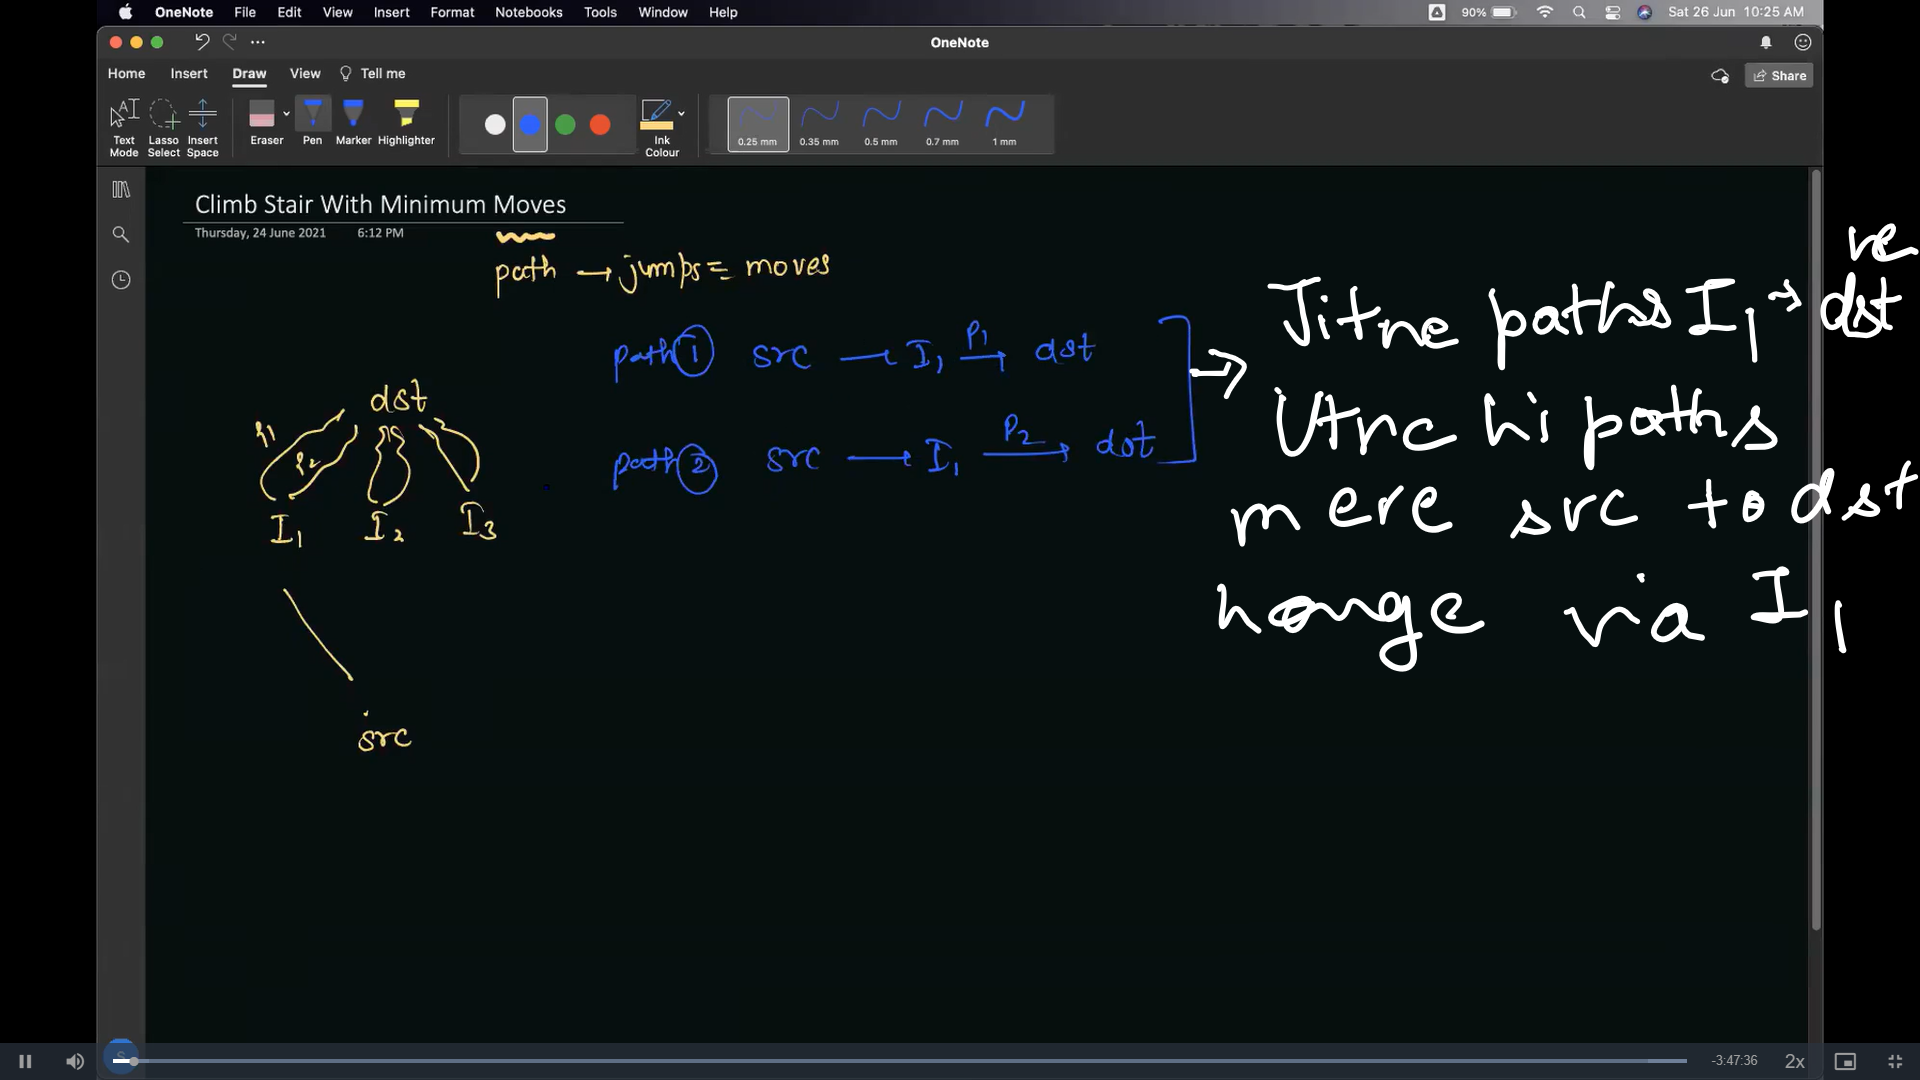 OneNote File Edit View Insert Format Notebooks Tools Window Help 90% Sat 26 Jun 10:25 AM
OneNote
Home Insert Draw View Tell me Share
Text Mode Lasso Select Insert Space Eraser Pen Marker Highlighter Ink Colour 0.25 mm 0.35 mm 0.5 mm 0.7 mm 1 mm
Climb Stair With Minimum Moves
Thursday, 24 June 2021 6:12 PM
path → jumps = moves
path ① src → I1 P1 → dst
path ② src → I1 P2 → dst
dst
P1 P2
I1 I2 I3
src
Jitne paths I1 → dst
Utne hi paths
mere src to dst
honge via I1
-3:47:36 2x